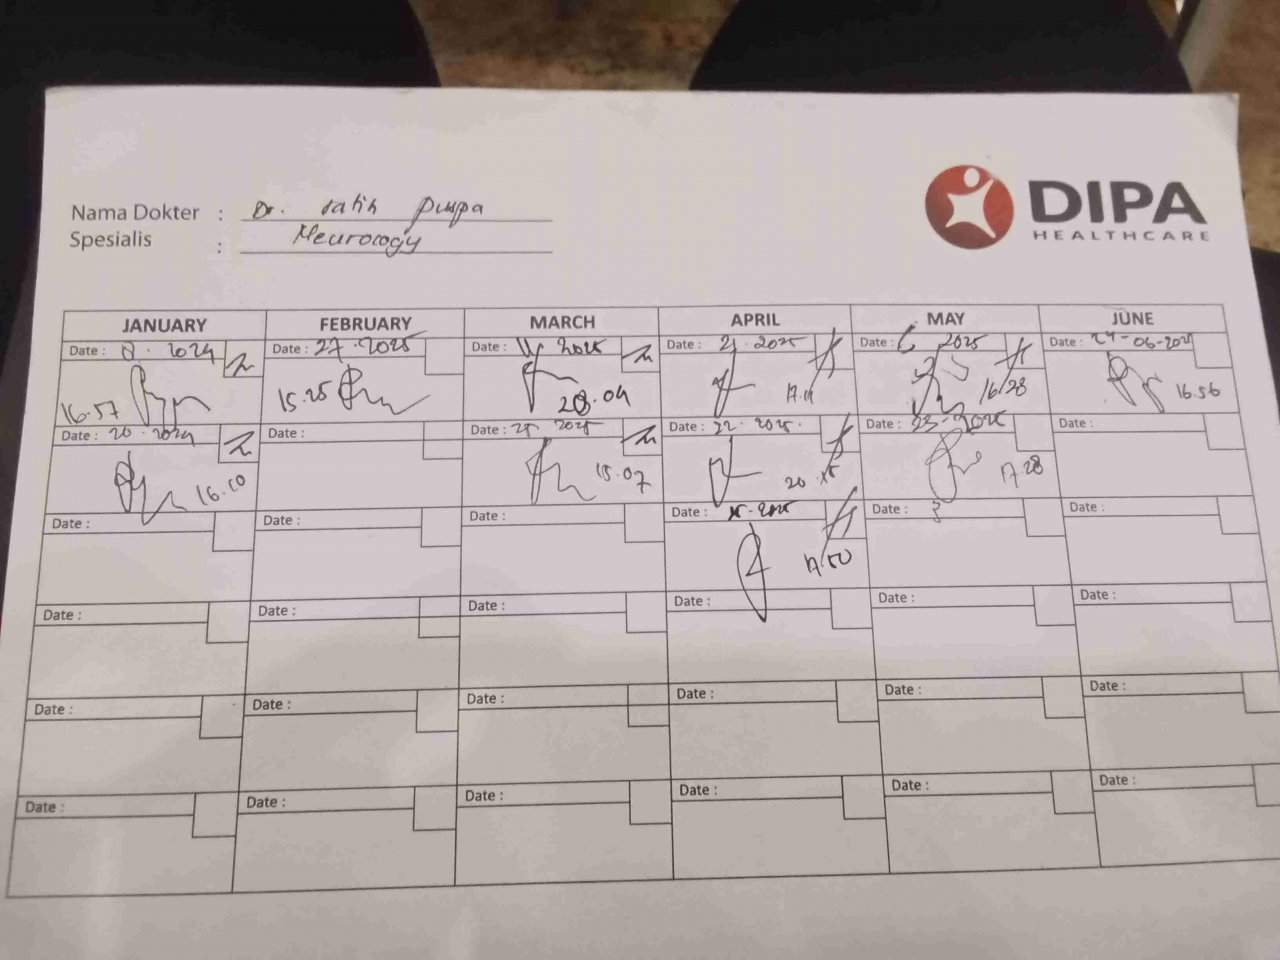 DIPA
HEALTHCARE
Nama Dokter : Dr. ratih puspa
Spesialis : Neurology
JANUARY FEBRUARY MARCH APRIL MAY JUNE
Date : 8 . 2024 Date : 27 . 2025 Date : 11 2025 Date : 21 . 2025 Date : 6 2025 Date : 24 - 06 - 2025
16.57 15.25 20.04 17.11 16.28 16.56
Date : 20 . 2024 Date : Date : 25 2025 Date : 22 . 2025 . Date : 23 - 2025 Date :
16.10 15.07 20.15 17.28
Date : Date : Date : Date : 15 - 2025 Date : 3 Date :
17.50
Date : Date : Date : Date : Date : Date :
Date : Date : Date : Date : Date : Date :
Date : Date : Date : Date : Date : Date :